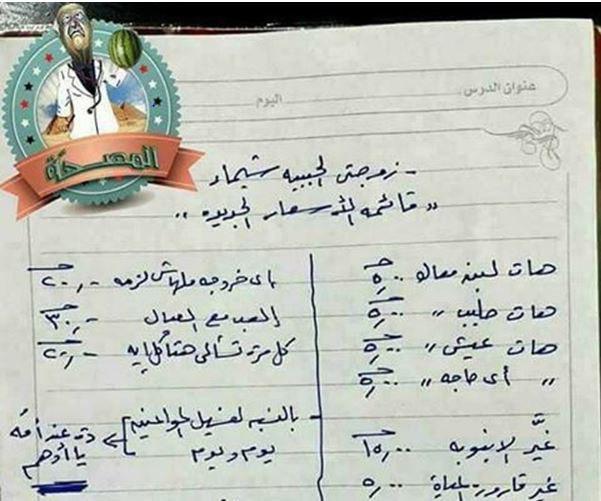 المصحة
عنوان الدرس
اليوم
- زوجتى الحبيبه شيماء
" قائمه الأسعار الجديده "
هات لبنه معاك ٥,٠٠ ج
هات حليب " ٥,٠٠ ج
هات عيش " ٥,٠٠ ج
" أى حاجه " ٥,٠٠ ج
غيَّر الانبوبه ١٥,٠٠ ج
غير قارورة لمياة ٥,٠٠
اى خروجه ملهاش لزمه - ٢٠,٠٠ ج
العب مع العيال - ٣٠,٠٠ ج
كل مرة تسألى هتاكل إيه - ٢٠,٠٠ ج
- بالنسبه لغسيل المواعين
يوم ويوم
ده عند أمه
يا أدهم